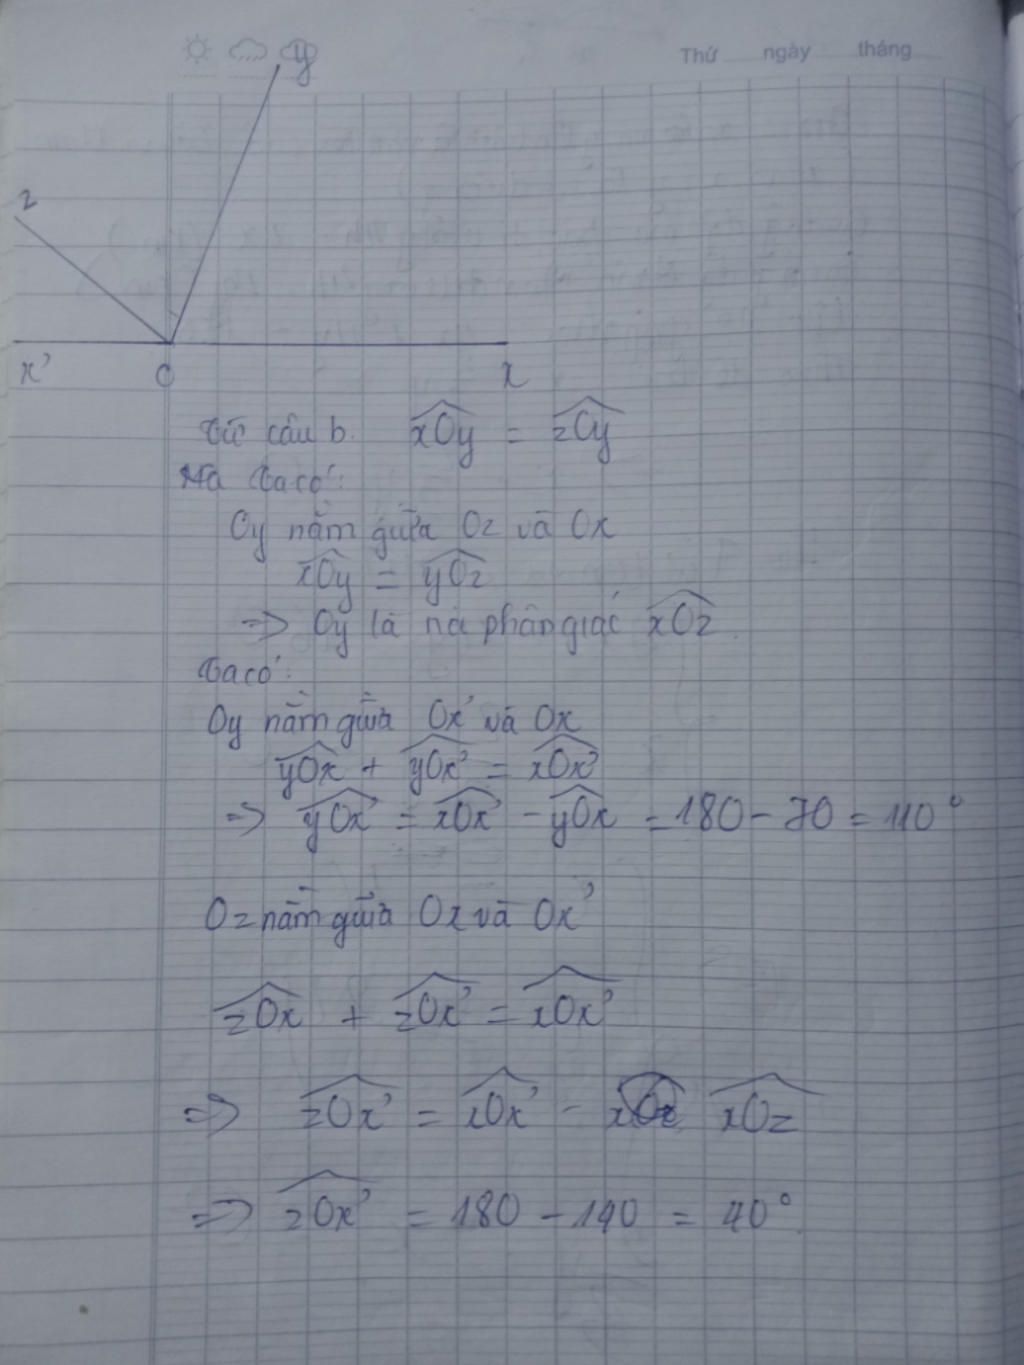 Thứ ngày tháng
y
z
x' O x
Từ câu b. xOy = zOy
Mà ta có:
Oy nằm giữa Oz và Ox
xOy = yOz
=> Oy là tia phân giác xOz
Ta có:
Oy nằm giữa Ox' và Ox
yOx + yOx' = xOx'
=> yOx' = xOx' - yOx = 180 - 70 = 110°
Oz nằm giữa Ox và Ox'
zOx + zOx' = xOx'
=> zOx' = xOx' - xOz
=> zOx' = 180 - 140 = 40°